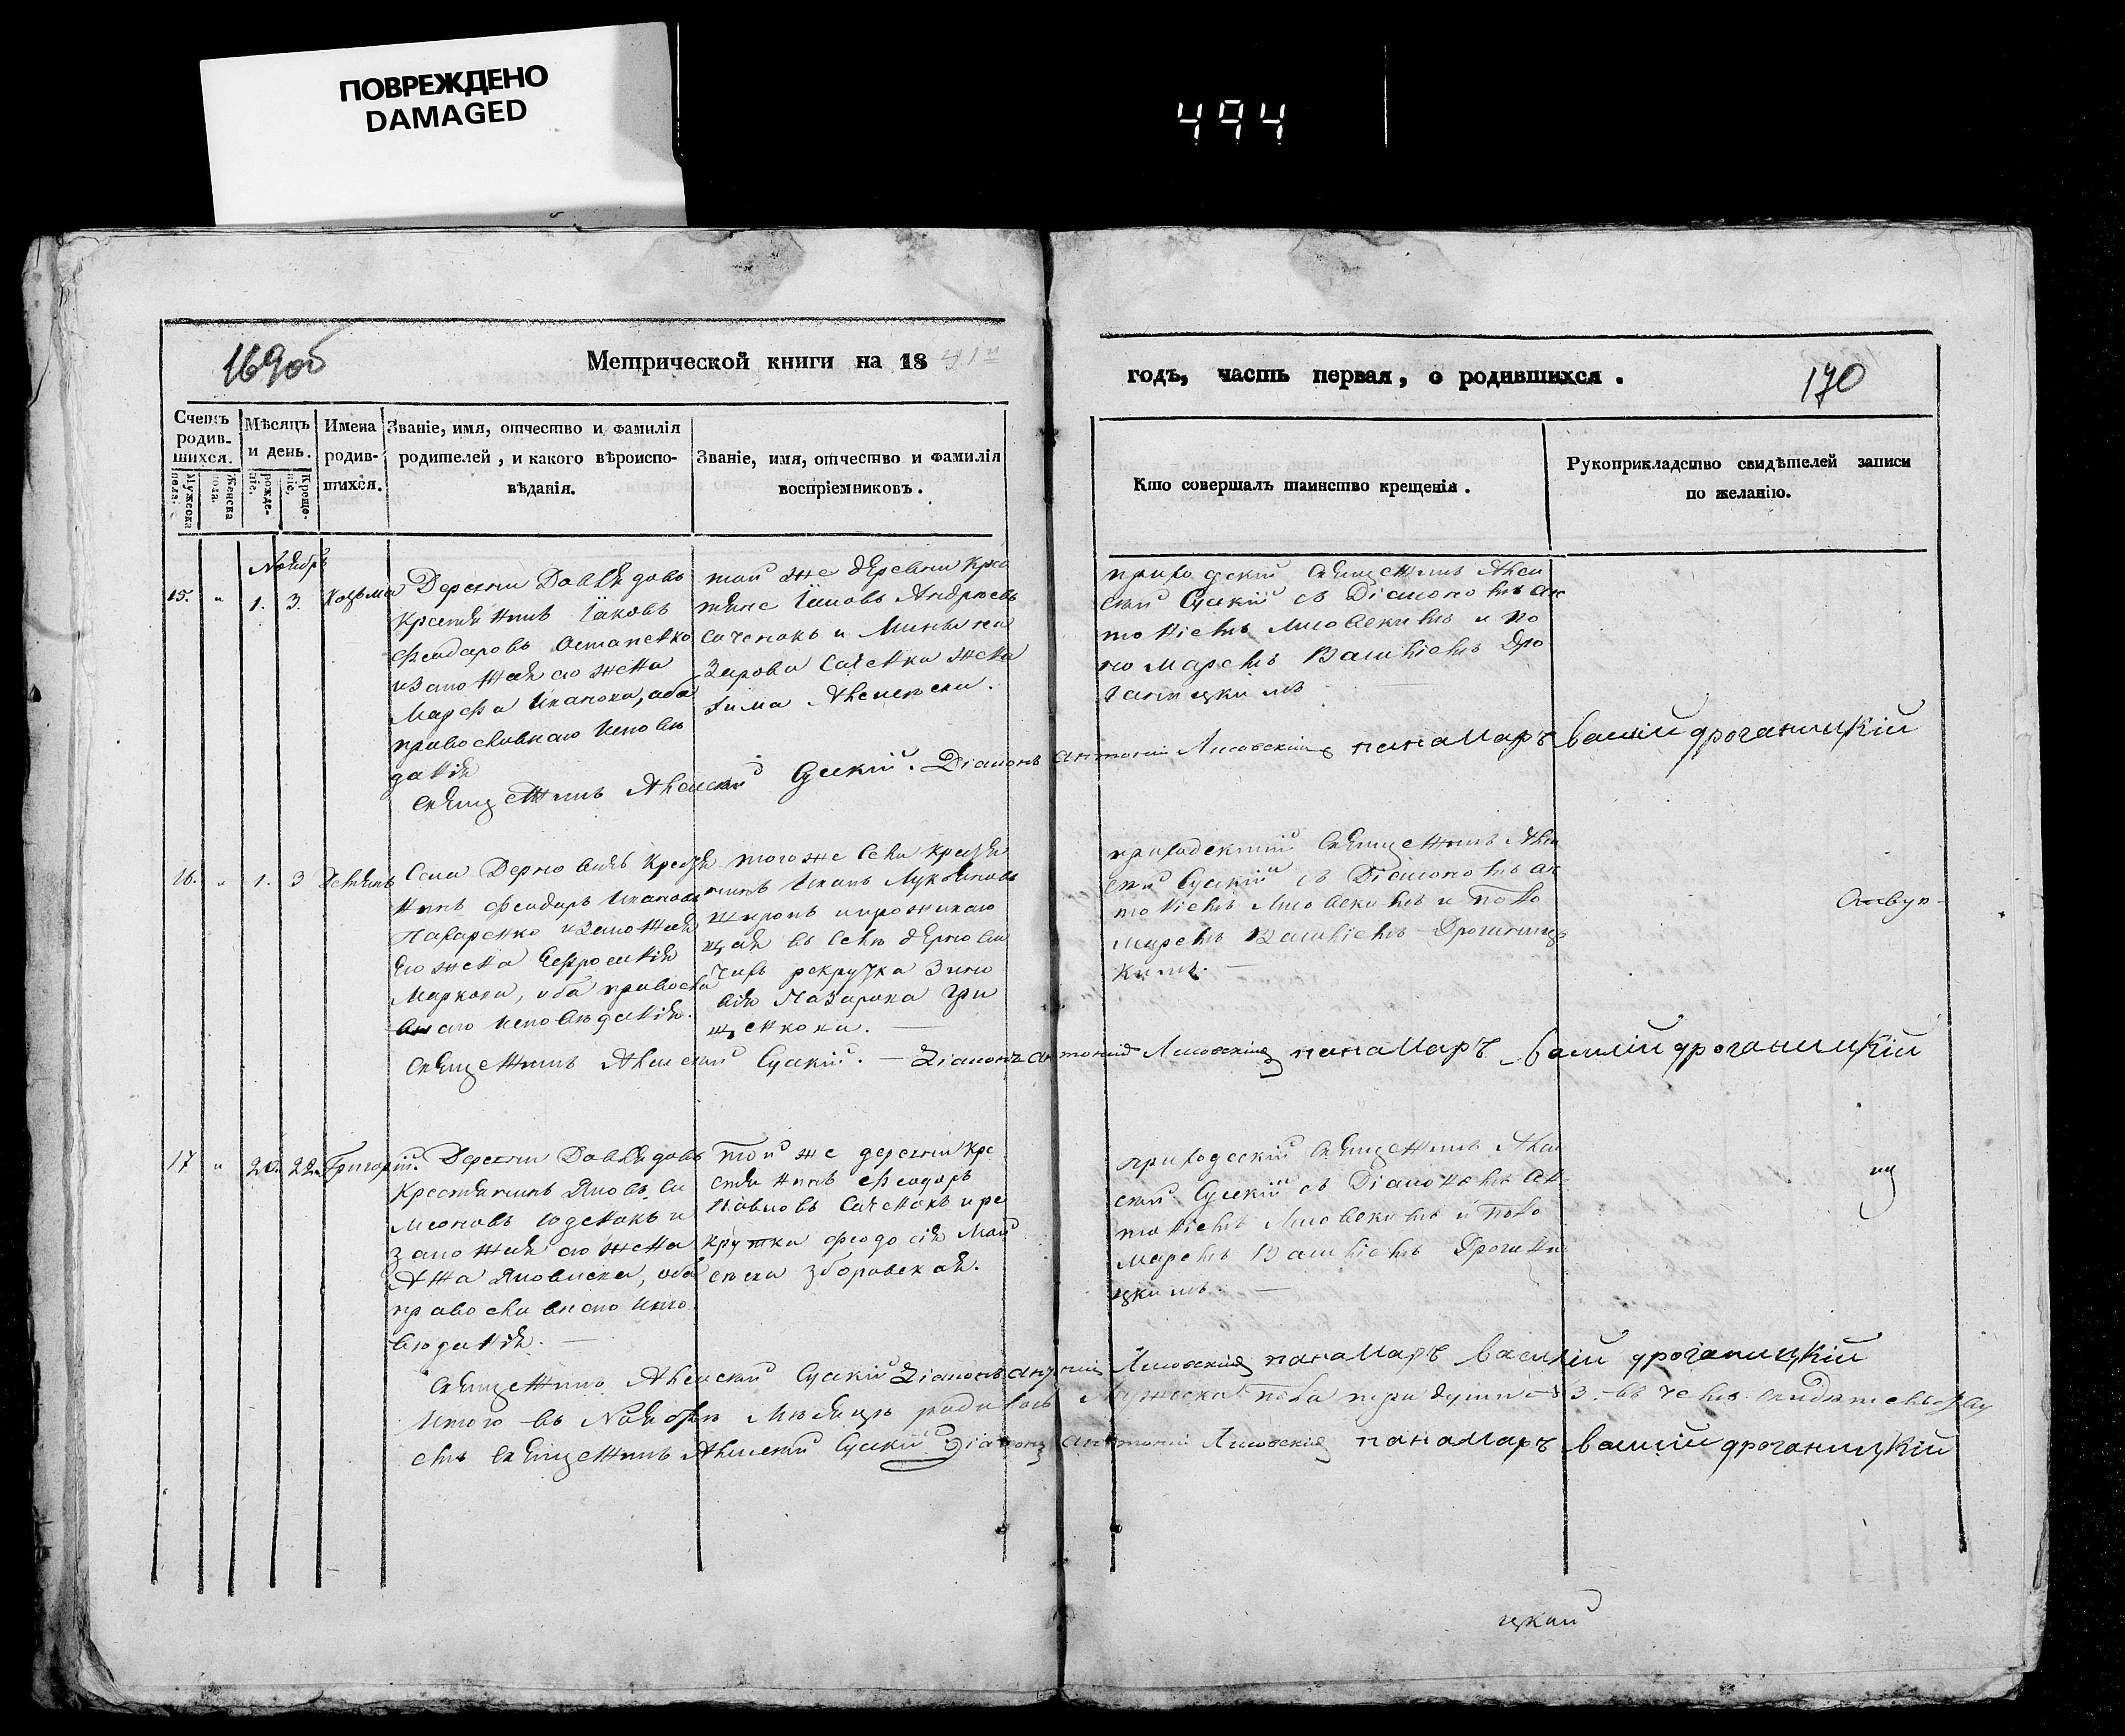 ПОВРЕЖДЕНО
DAMAGED
494
169 об
Метрической книги на 18 41й
годъ, часть первая, о родившихся.
170
Счетъ родив-шихся.
Мужеска пола.
Женска пола.
Мѣсяцъ и день.
рожде-ніе.
Креще-ніе.
Имена родив-шихся.
Званіе, имя, отчество и фамилія
родителей, и какого вѣроиспо-
вѣданія.
Званіе, имя, отчество и фамилія
воспріемниковъ.
Кто совершалъ таинство крещенія.
Рукоприкладство свидѣтелей записи
по желанію.
Ноябрь
15. " 1. 3. Козьма
Деревни Давидовъ
Крестянинъ Іаковъ
Феодоровъ Остапенко
и законная его жена
Марфа Иванова, оба
православнаго исповѣ
данія
той же деревни Кре
Андреевъ
Саченокъ и
Саченка жена
Алексеева.
приходскій Священникъ Алек
сѣй Сускій съ Діакономъ Ан
тоніемъ Лисовскимъ и по
номаремъ Василіемъ Дро
ганицкимъ
Священникъ Алексѣй Сускій. Діаконъ Антоній Лисовскій панамаръ василій дроганицкій
16. " 1. 3
Села Дерновичъ Крестя
нинъ Феодоръ Иванов
Назаренко и законная
его жена Ефросинія
Маркова, оба правосла
внаго исповѣданія.
того же села Крестя
нинъ Иванъ
и проживаю
щая въ селѣ Дернови
чахъ рекрутка Зино
вія Назарова Гри
щенкова.
приходскій Священникъ Алек
сѣй Сускій съ Діакономъ Ан
тоніемъ Лисовскимъ и поно
маремъ Василіемъ Дроганиц
кимъ.
Священникъ Алексѣй Сускій. Діаконъ Антоній Лисовскій панамаръ василій дроганицкій
17 " 20. 22. Григорій.
Деревни Давидовъ
Крестянинъ Яковъ Си
меоновъ и
законная его жена
Анна Яковлева, оба
православнаго испо
вѣданія.
той же деревни Кре
стянинъ Феодоръ
Павловъ Саченокъ и ре
крутка Феодосія Мои
сеева Зборовская.
приходскій Священникъ Алек
сѣй Сускій съ Діакономъ Ан
тоніемъ Лисовскимъ и поно
маремъ Василіемъ Дрогани
цкимъ.
Священникъ Алексѣй Сускій Діаконъ Антоній Лисовскій панамаръ василій дроганицкій
Итого въ Ноябрѣ Мѣсяцѣ родилось Мужеска пола три души 3. въ чемъ свидѣтельству
емъ Священникъ Алексѣй Сускій Діаконъ Антоній Лисовскій панамаръ василій дроганицкій
цкий